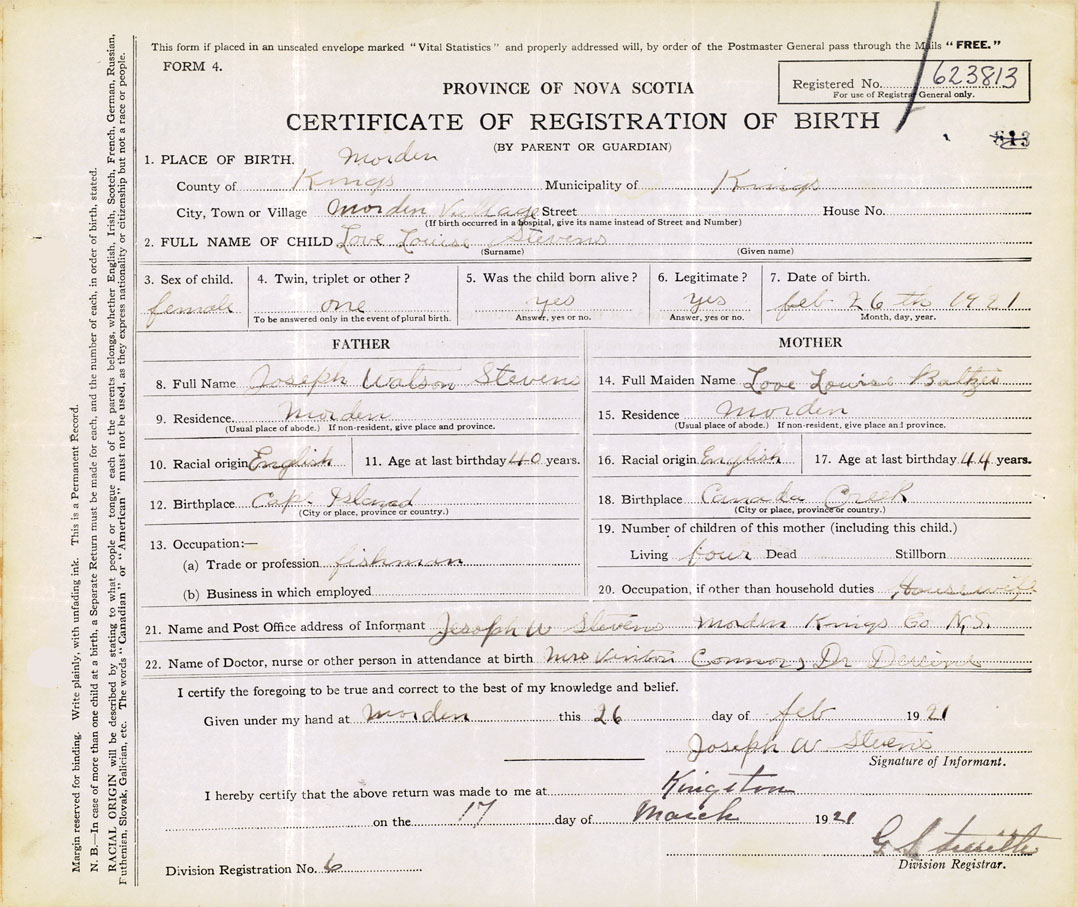 This form if placed in an unsealed envelope marked "Vital Statistics" and properly addressed will, by order of the Postmaster General pass through the Mails "FREE."
FORM 4.
Registered No. 623813
For use of Registrar General only.
PROVINCE OF NOVA SCOTIA
CERTIFICATE OF REGISTRATION OF BIRTH
813
(BY PARENT OR GUARDIAN)
1. PLACE OF BIRTH. Morden
County of Kings Municipality of Kings
City, Town or Village Morden Village Street House No.
(If birth occurred in a hospital, give its name instead of Street and Number)
2. FULL NAME OF CHILD Love Louise Stevens
(Surname) (Given name)
3. Sex of child. 4. Twin, triplet or other? 5. Was the child born alive? 6. Legitimate? 7. Date of birth.
female one yes yes feb 26th 1921
To be answered only in the event of plural birth. Answer, yes or no. Answer, yes or no. Month, day, year.
FATHER
8. Full Name Joseph Watson Stevens
9. Residence. Morden
(Usual place of abode.) If non-resident, give place and province.
10. Racial origin English 11. Age at last birthday 40 years.
12. Birthplace Cape Island
(City or place, province or country.)
13. Occupation:—
(a) Trade or profession fishman
(b) Business in which employed
MOTHER
14. Full Maiden Name Love Louise
15. Residence Morden
(Usual place of abode.) If non-resident, give place and province.
16. Racial origin English 17. Age at last birthday 44 years.
18. Birthplace Canada Creek
(City or place, province or country.)
19. Number of children of this mother (including this child.)
Living four Dead Stillborn
20. Occupation, if other than household duties Housewife
21. Name and Post Office address of Informant Jesoph W Stevens Morden Kings Co N.S.
22. Name of Doctor, nurse or other person in attendance at birth Mrs Vinton Connors, Dr
I certify the foregoing to be true and correct to the best of my knowledge and belief.
Given under my hand at Morden this 26 day of feb 1921
Joseph W Stevens
Signature of Informant.
I hereby certify that the above return was made to me at Kingston
on the 17 day of March 1921
Division Registrar.
Division Registration No. 6
Margin reserved for binding. Write plainly, with unfading ink. This is a Permanent Record.
N. B.—In case of more than one child at a birth, a Separate Return must be made for each, and the number of each, in order of birth, stated.
RACIAL ORIGIN will be described by stating to what people or tongue each of the parents belongs, whether English, Irish, Scotch, French, German, Russian,
Ruthenian, Slovak, Galician, etc. The words "Canadian" or "American" must not be used, as they express nationality or citizenship but not a race or people.